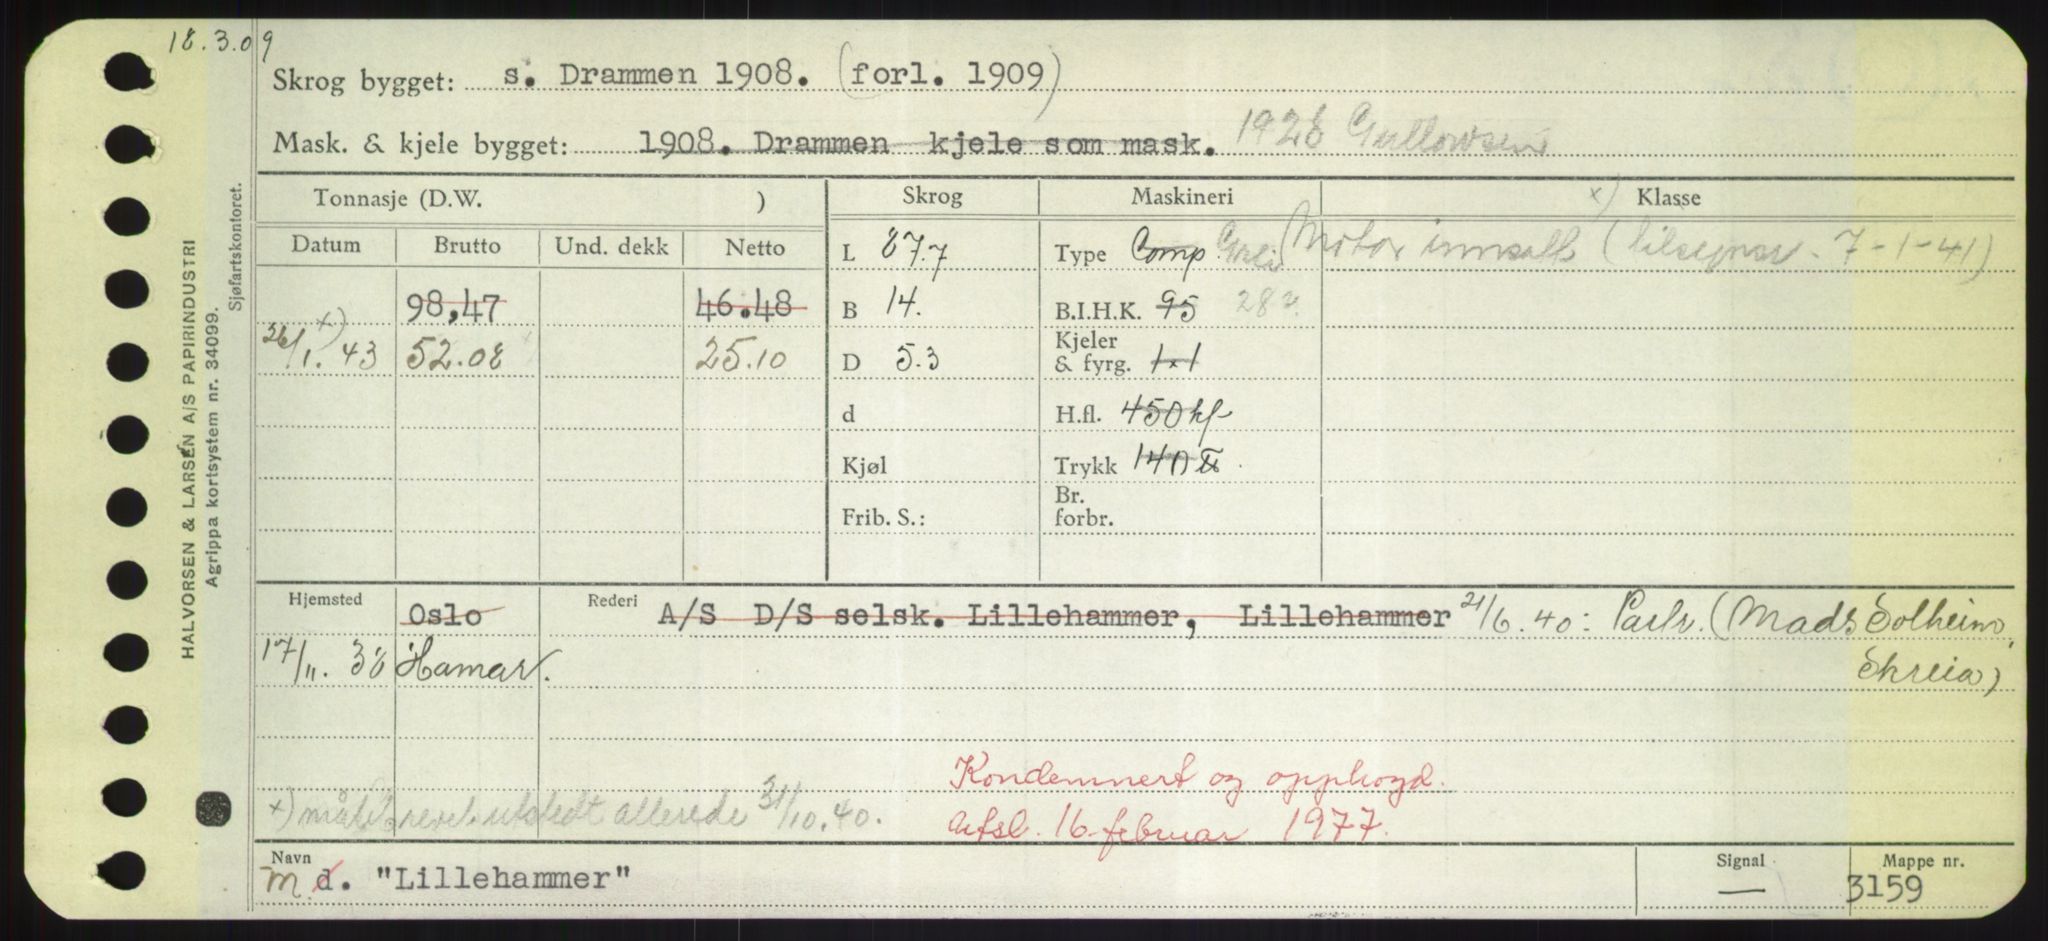 18.3.09
Skrog bygget: s. Drammen 1908. (forl. 1909)
Mask. & kjele bygget: 1908. Drammen kjele som mask. 1928 Gullowsen
Tonnasje (D.W. ) Skrog Maskineri x) Klasse
Datum Brutto Und. dekk Netto L 87.7 Type Comp. Motor innsatt ( 7-1-41)
98,47 46.48 B 14. B.I.H.K. 95 28
x)
26/1. 43 52.08 25.10 D 5.3 Kjeler & fyrg. 1x1
d H.fl. 450 kf
Kjøl Trykk 140 ℔.
Frib. S.: Br. forbr.
Hjemsted Oslo Rederi A/S D/S selsk. Lillehammer, Lillehammer 21/6.40: Partr. (Mads Solheim,
17/11. 38 Hamar. Skreia)
Kondemnert og opphogd.
x) målebrevet utstedt allerede 31/10.40. avsl. 16. februar 1977.
Navn m d. "Lillehammer" Signal — Mappe nr. 3159
HALVORSEN & LARSEN A/S PAPIRINDUSTRI
Agrippa kortsystem nr. 34099.
Sjøfartskontoret.